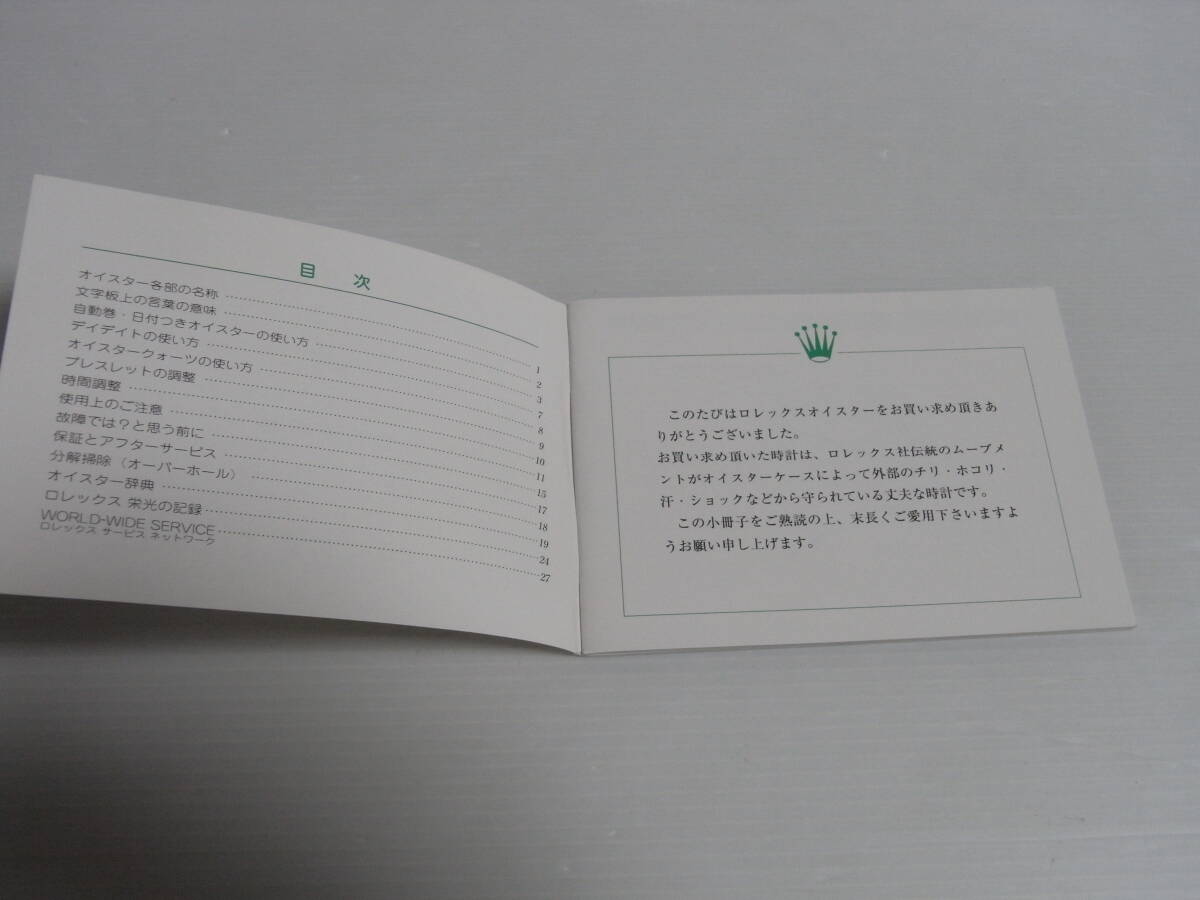 目 次
オイスター各部の名称 1
文字板上の言葉の意味 2
自動巻・日付つきオイスターの使い方 3
デイデイトの使い方 7
オイスタークォーツの使い方 8
ブレスレットの調整 9
時間調整 10
使用上のご注意 11
故障では?と思う前に 15
保証とアフターサービス 17
分解掃除(オーバーホール) 18
オイスター辞典 19
ロレックス 栄光の記録 24
WORLD-WIDE SERVICE 27
ロレックス サービス ネットワーク
このたびはロレックスオイスターをお買い求め頂きあ
りがとうございました。
お買い求め頂いた時計は、ロレックス社伝統のムーブメ
ントがオイスターケースによって外部のチリ・ホコリ・
汗・ショックなどから守られている丈夫な時計です。
この小冊子をご熟読の上、末長くご愛用下さいますよ
うお願い申し上げます。